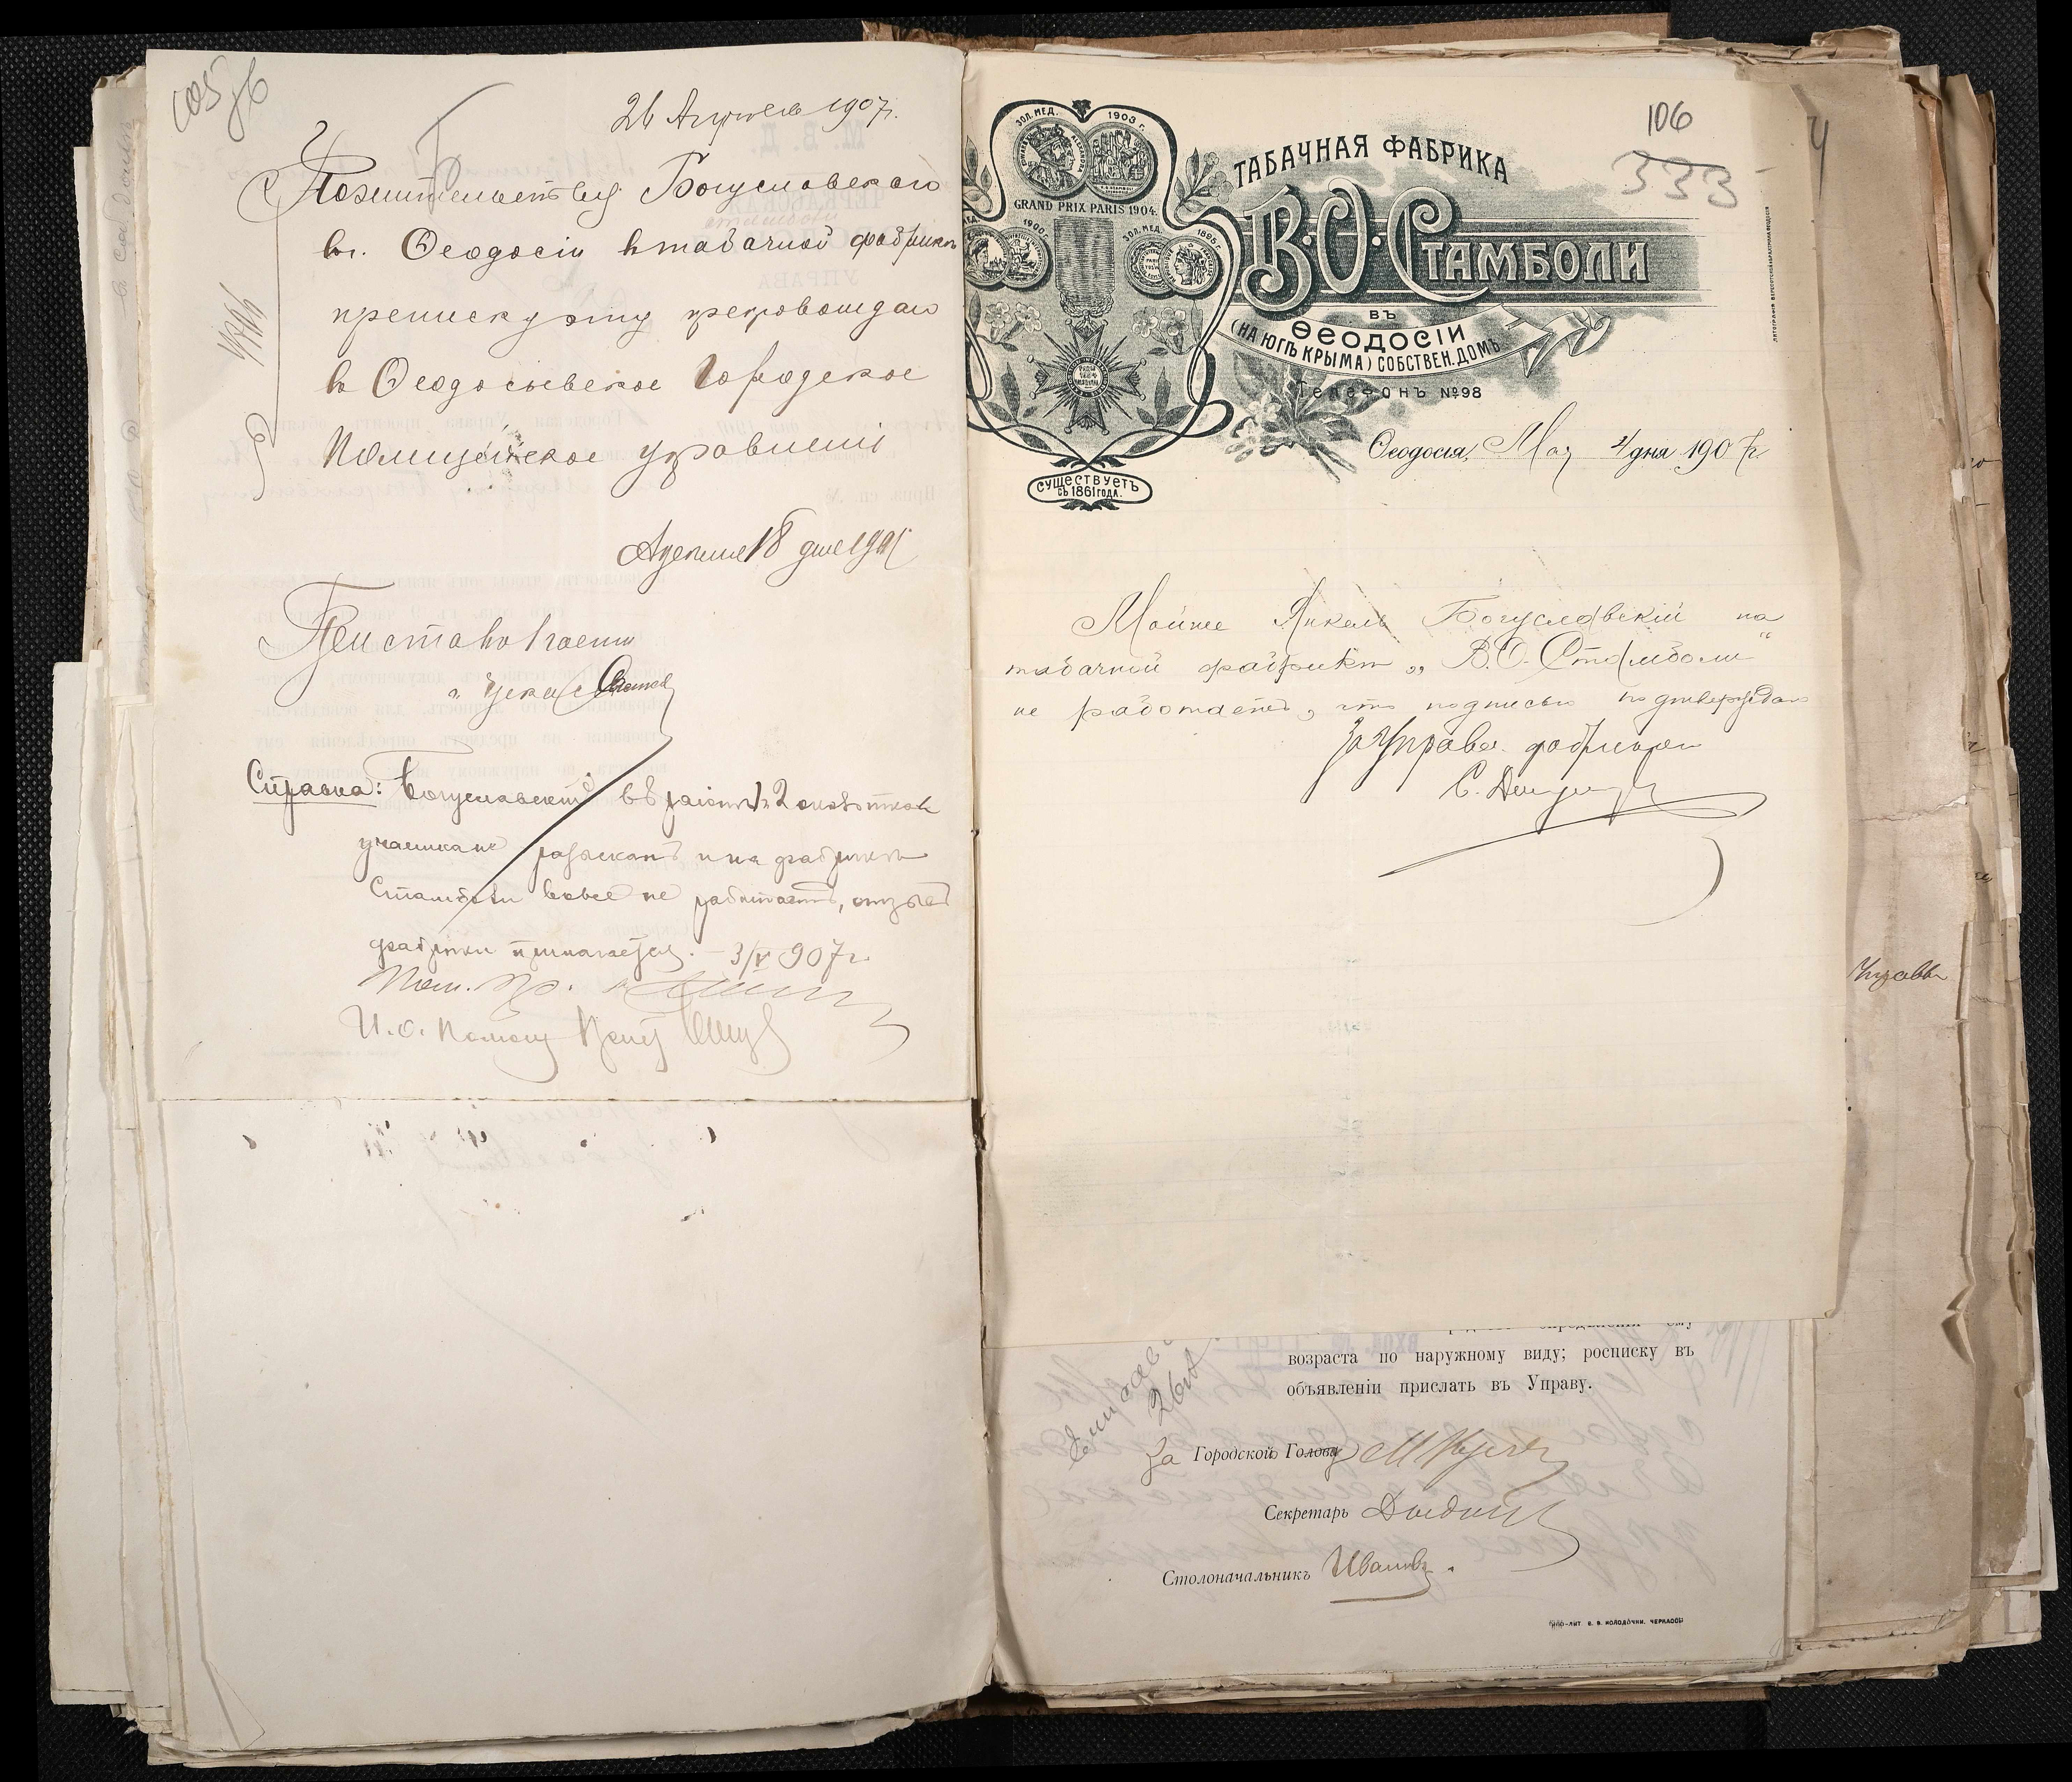 105 об
26 Апреля 1907 г.
Пожительству Богуславского
в г. Ѳеодосіи в табачной фабрикѣ
преписку эту препровождаю
в Ѳеодосіевское Городское
Полицейское управленіе
Апреля 18 дня 1907
Справка: Богуславскій въ раіонѣ 1 и 2 околотковъ
участка не разысканъ и на фабрикѣ
Стамболи вовсе не работаетъ, отзывъ
фабрики прилагается. – 3/V 907 г.
Пом. Пр.
И. о. Помощ Прист
106
333
ЗОЛ. МЕД. 1903 г.
GRAND PRIX PARIS 1904.
1900 г.
ЗОЛ. МЕД. 1895 г.
ТАБАЧНАЯ ФАБРИКА
В.О. СТАМБОЛИ
ВЪ
ѲЕОДОСІИ
(НА ЮГѢ КРЫМА) СОБСТВЕН. ДОМЪ
Телефонъ №98
СУЩЕСТВУЕТЪ
СЪ 1861 ГОДА.
Ѳеодосія, Мая 4 дня 1907 г.
Мойше Янкель Богуславскій на
табачной фабрикѣ „В.О. Стамболи“
не работаетъ, что подписью подтверждаю
За Управл. фабрикою
Управы
возраста по наружному виду; росписку въ
объявленіи прислать въ Управу.
За Городской Голова
Секретарь
Столоначальникъ Ивановъ.
ТИПО-ЛИТ. В. В. КОЛОДОЧКИ. ЧЕРКАССЫ